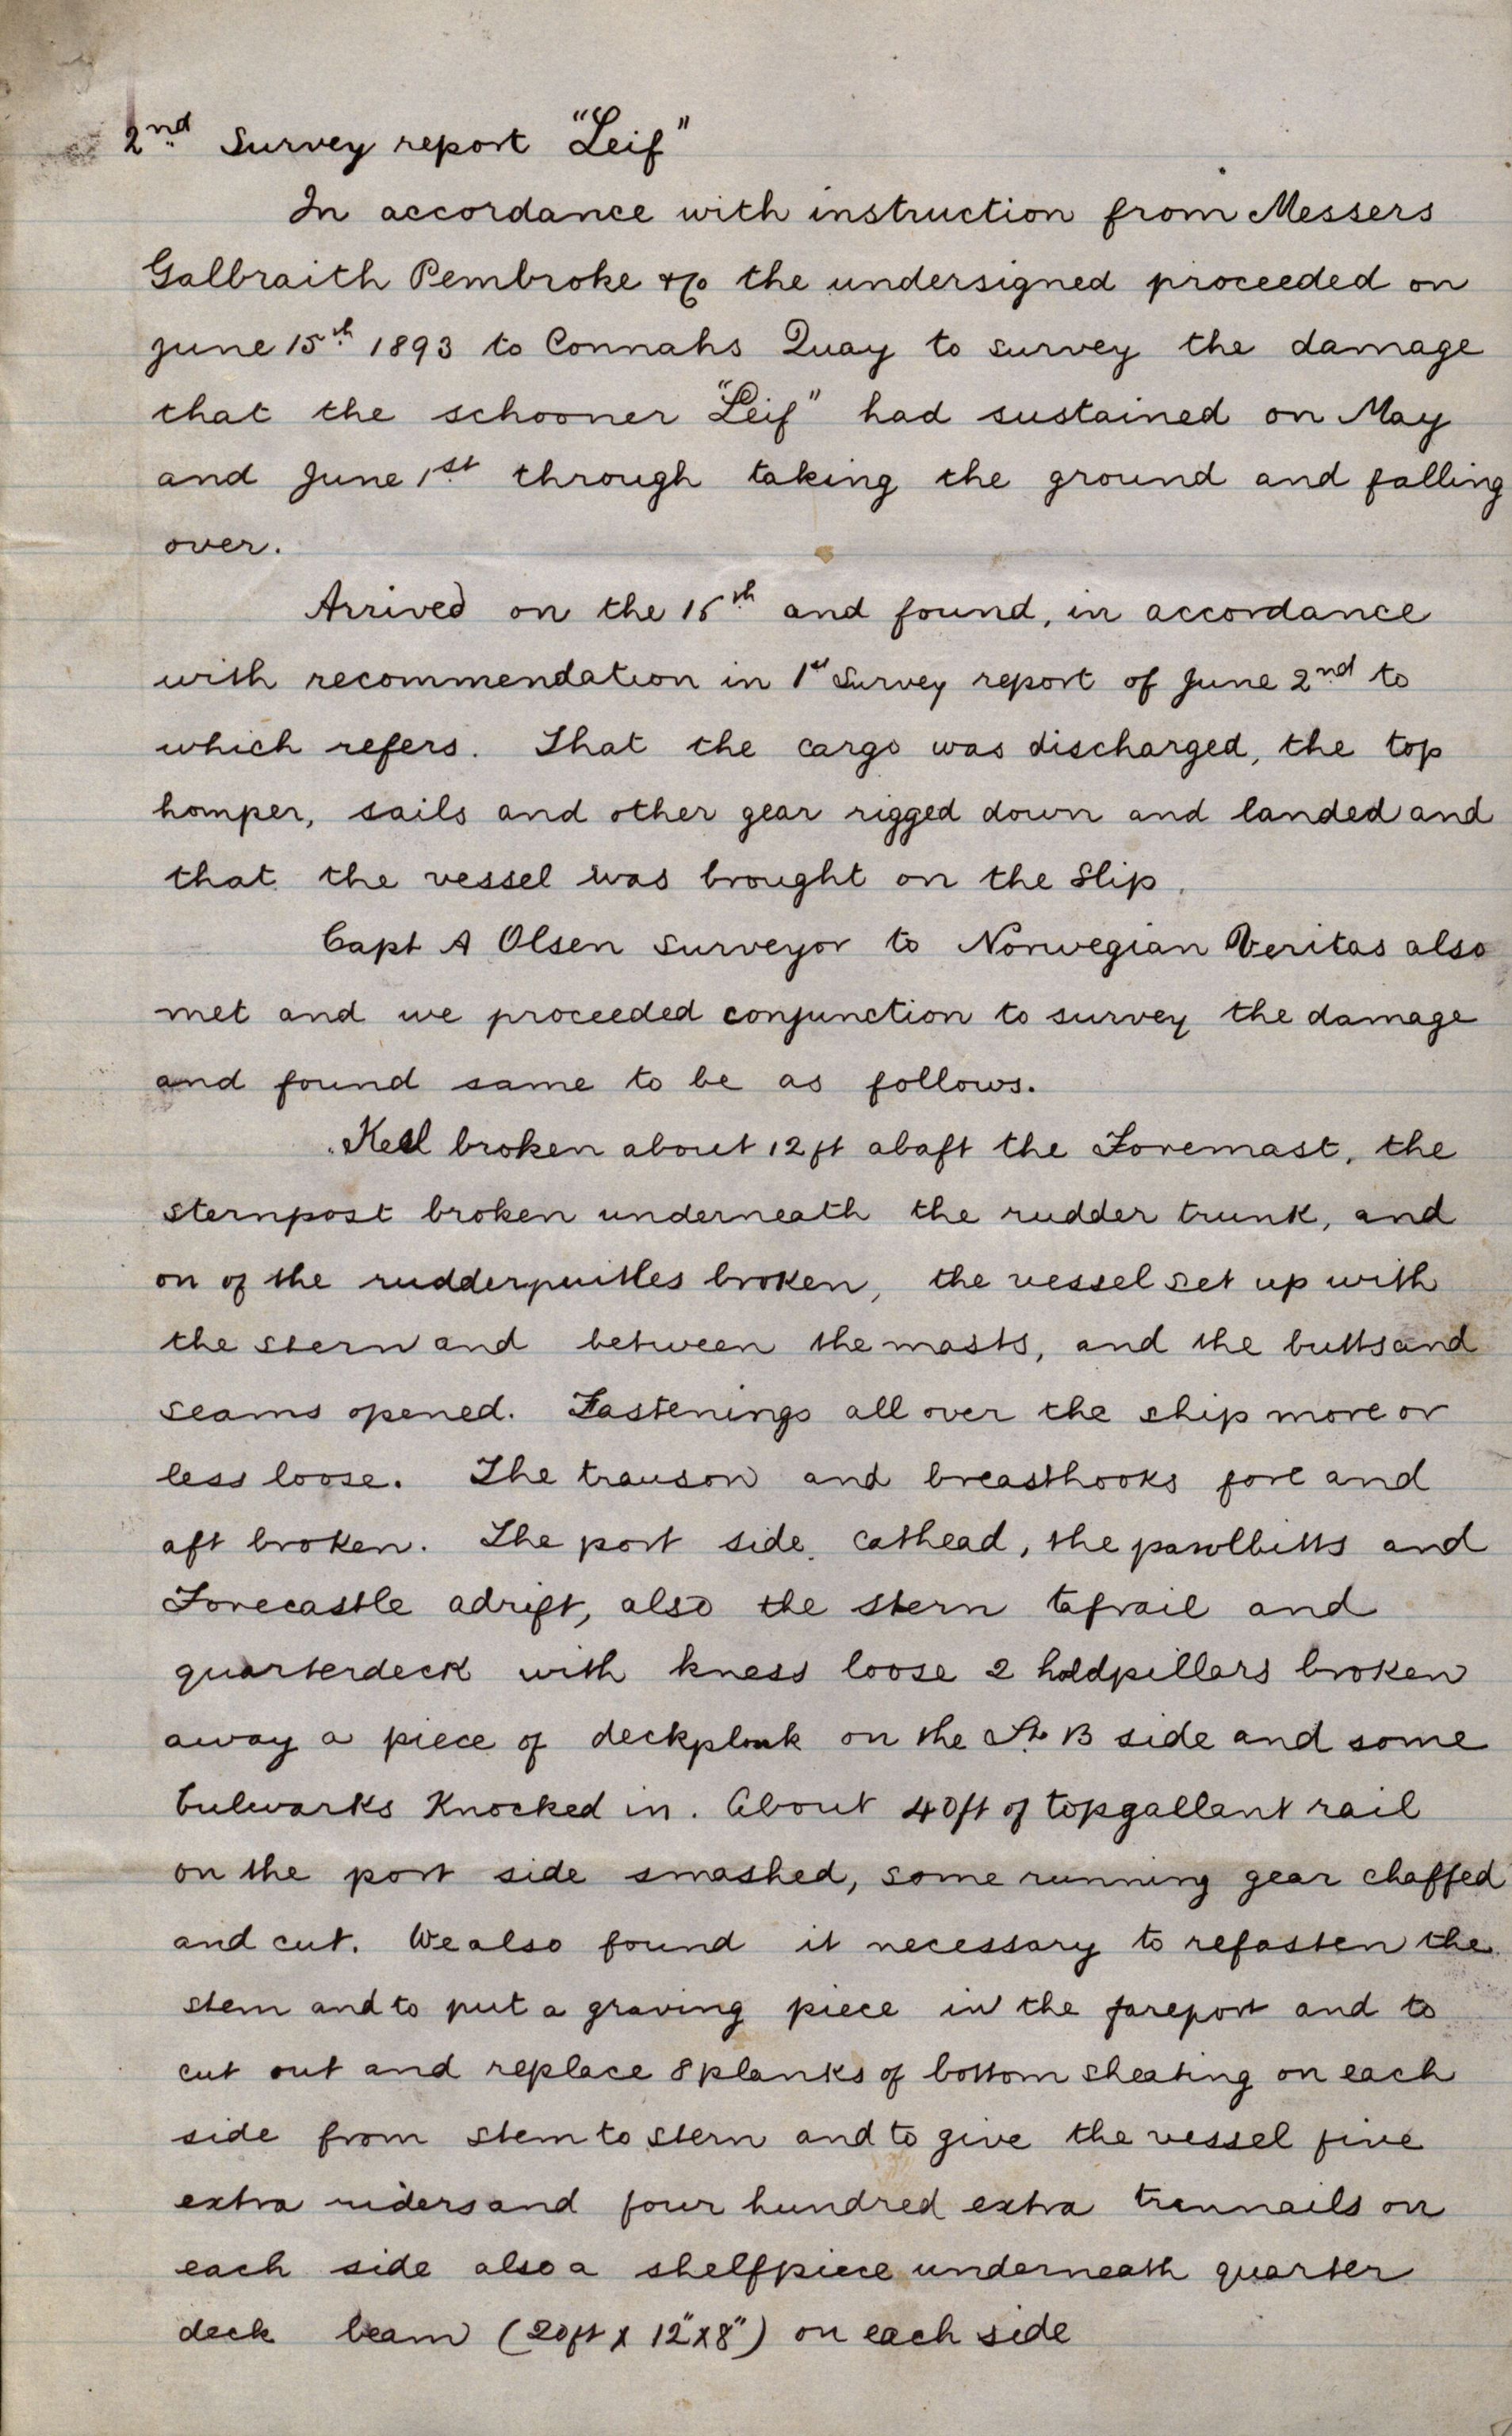 2nd Survey report "Leif"
In accordance with instruction from Messers
Galbraith Pembroke & Co the undersigned proceeded on
June 15th 1893 to Connahs Quay to survey the damage
that the schooner "Leif" had sustained on May
and June 1st through taking the ground and falling
over.
Arrived on the 15th and found, in accordance
with recommendation in 1st Survey report of June 2nd to
which refers. That the cargo was discharged, the top
homper, sails and other gear rigged down and landed and
that the vessel was brought on the Slip.
Capt A Olsen surveyor to Norwegian Veritas also
met and we proceeded conjunction to survey the damage
and found same to be as follows.
Keel broken about 12 ft abaft the Foremast, the
sternpost broken underneath the rudder trunk, and
on of the rudderpuitles broken, the vessel set up with
the stern and between the masts, and the butts and
seams opened. Fastenings all over the ship more or
less loose. The trauson and breasthooks fore and
aft broken. The port side cathead, the pawlbitts and
Forecastle adrift, also the stern tafrail and
quarterdeck with kness loose 2 holdpillars broken
away a piece of deckplank on the St B side and some
bulwarks knocked in. About 40ft of topgallant rail
on the port side smashed, some running gear chaffed
and cut. We also found it necessary to refasten the
stem and to put a graving piece in the foreport and to
cut out and replace 8 planks of bottom sheating on each
side from stem to stern and to give the vessel five
extra riders and four hundred extra trennails on
each side also a shelfpiece underneath quarter
deck beam (20ft x 12"x8") on each side